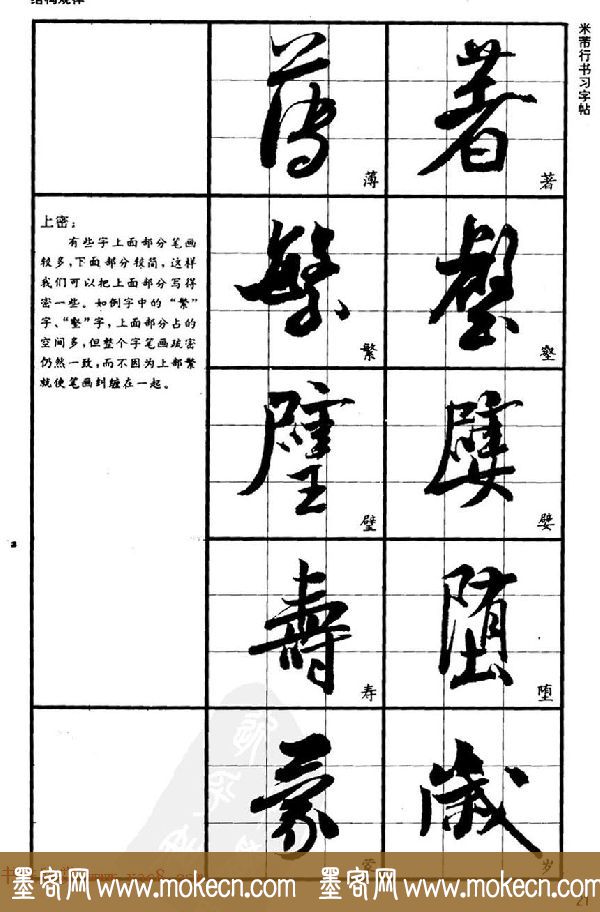 结构规律
米芾行书习字帖
薄 著
薄 著
上密：
有些字上面部分笔画
较多，下面部分很简，这样
我们可以把上面部分写得
密一些。如例字中的“繁”
字、“壑”字，上面部分占的
空间多，但整个字笔画疏密
仍然一致，而不因为上部繁
就使笔画纠缠在一起。
繁 壑
繁 壑
璧 嬖
璧 嬖
壽 堕
寿 堕
蒙 歲
岁
墨客网 www.mokecn.com 墨客网 www.mokecn.com
21